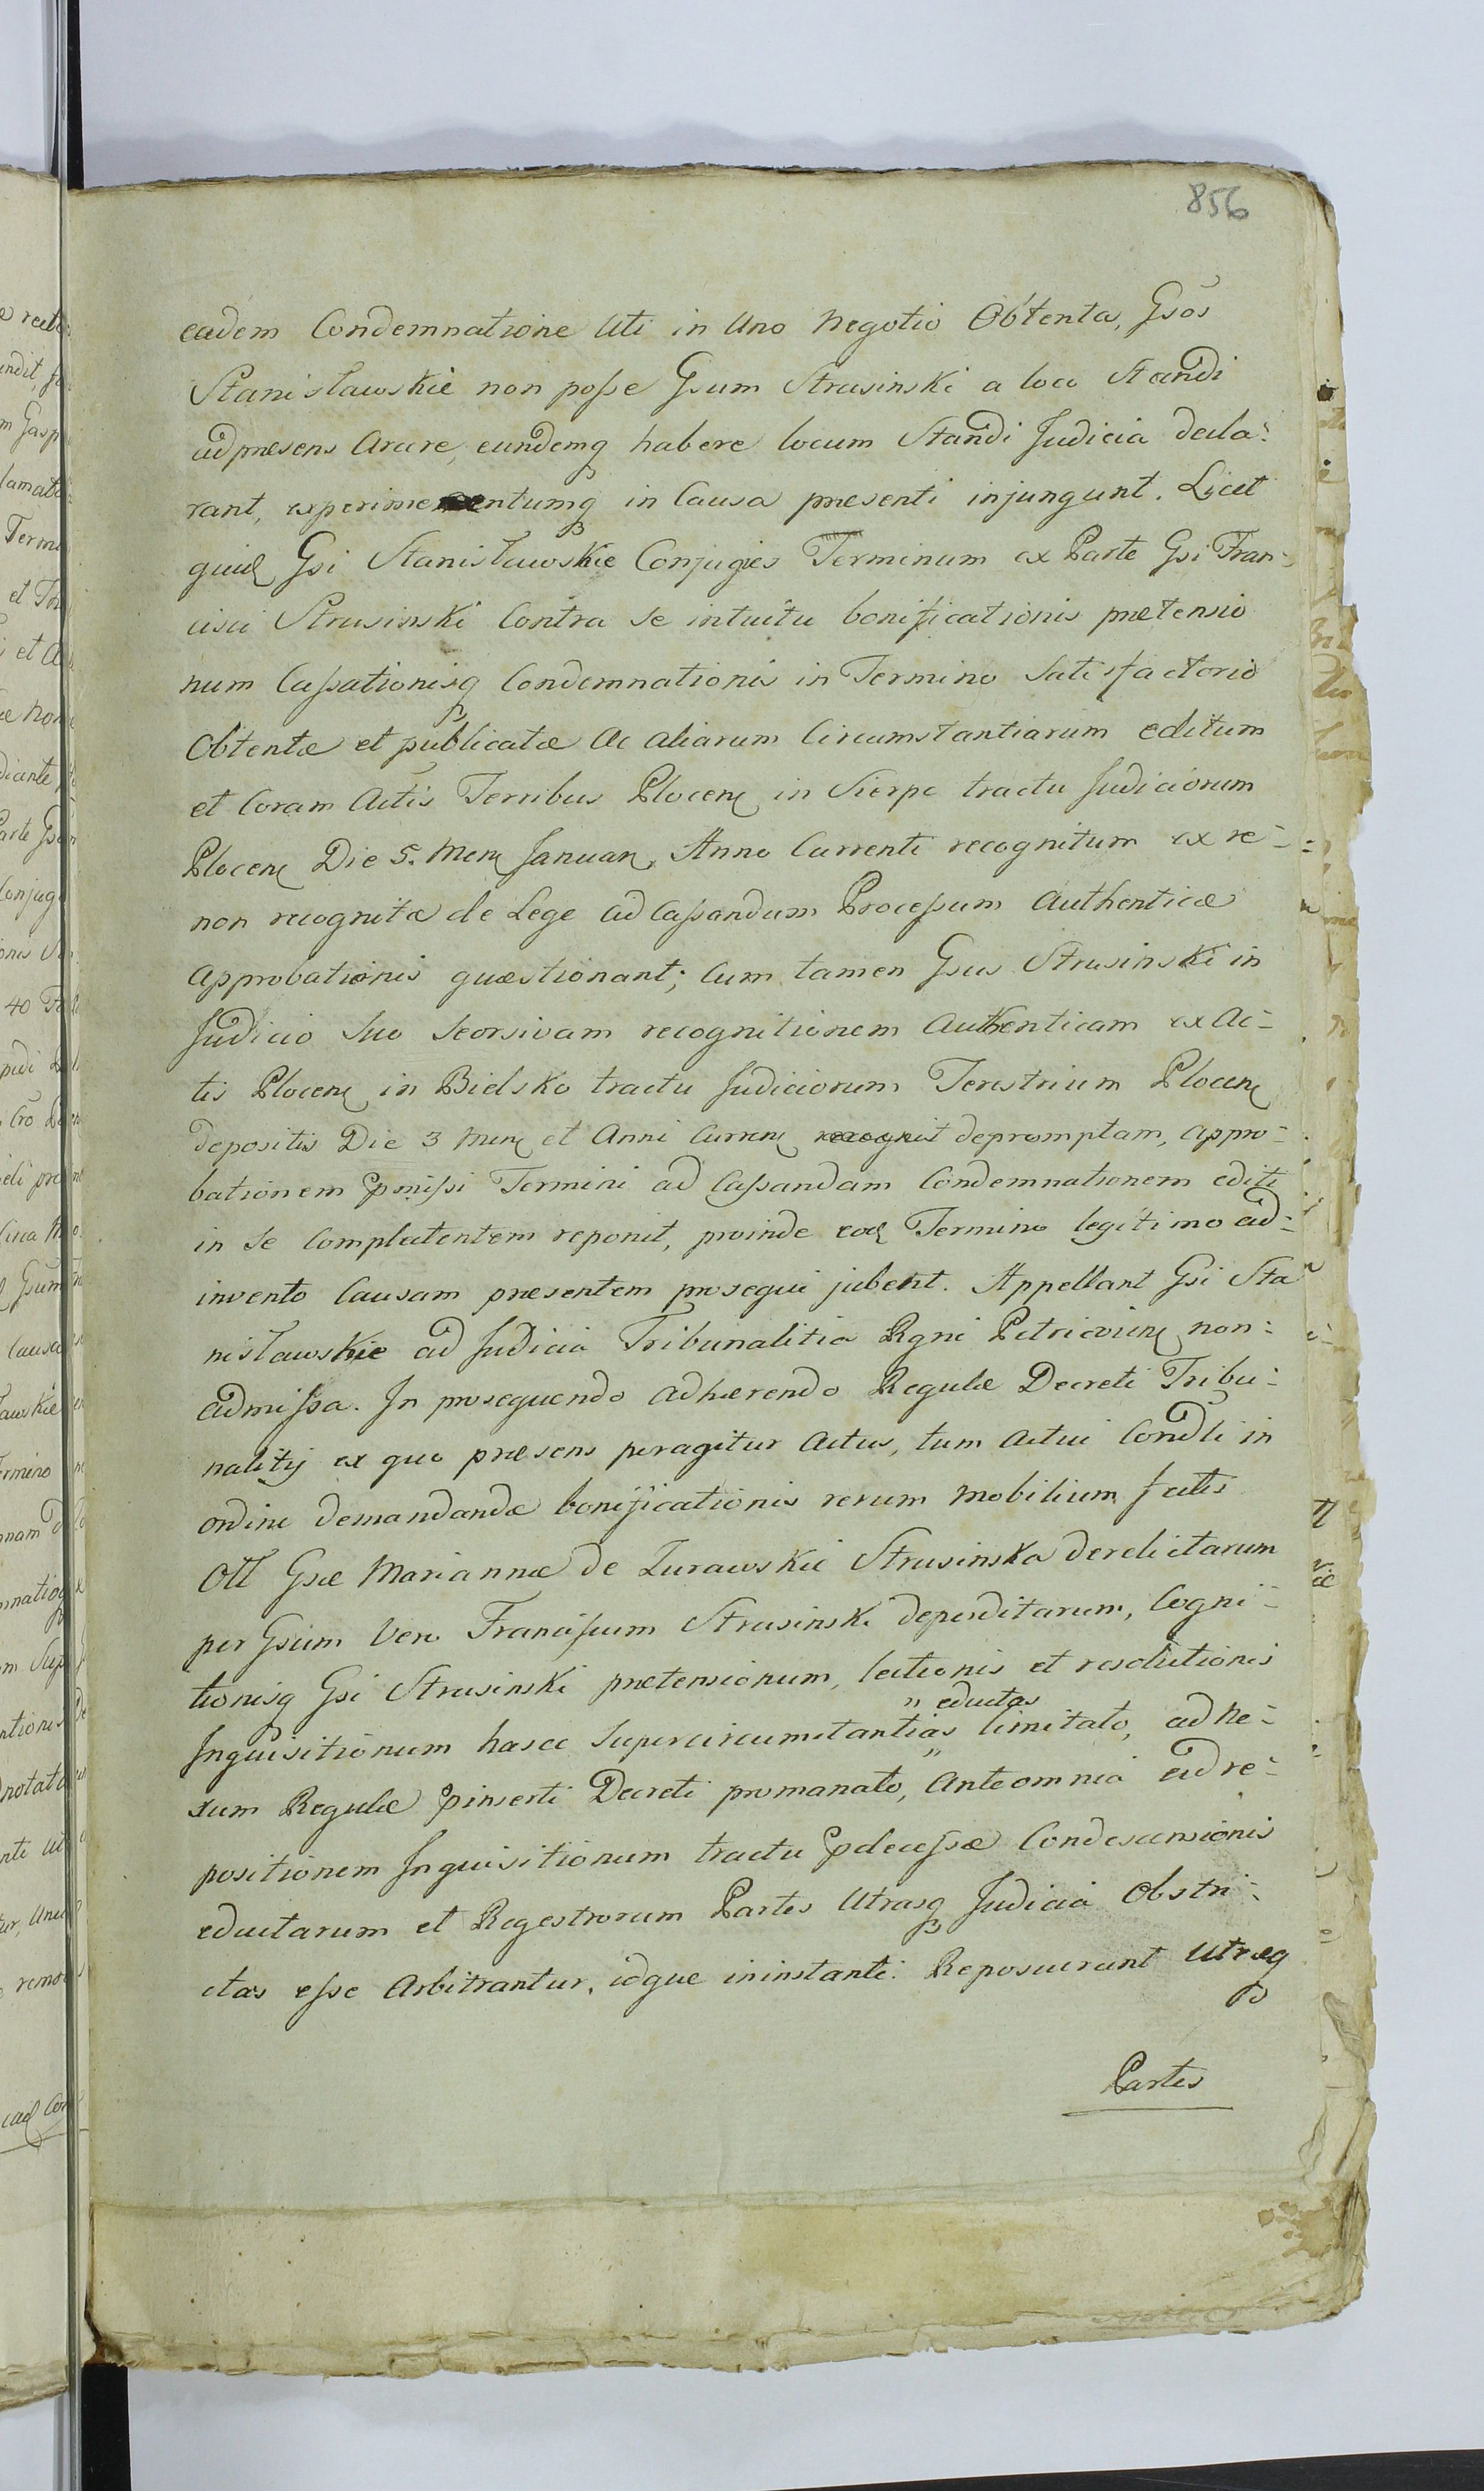 856
eadem Condemnatione Uti in Uno Negotio Obtenta, Gsos
Stanisławskie non posse Gsum Strusinski a loco Standi
adpraesens Arcere, eundemq habere locum Standi Judicia decla:
rant, experimentumq in Causa praesenti injungunt. Licet
quid Gsi Stanisławskie Conjuges Terminum ex Parte Gsi Fran-
cisci Strusinski Contra Se intuitu bonificationis praetensio
num Cassationisq Condemnationis in Termino Satisfactorio
Obtentae et publicatae Ac aliarum Circumstantiarum editum
et Coram Actis Terribus Plocen in Sierpc tractu Judiciorum
Plocen Die 5. Men Januar, Anno Currenti recognitum ex re-
non recognitae de Lege ad Cassandum Processum Authenticae
Approbationis quaestionant; Cum tamen Gsus Strusinski in
Judicio Suo Seorsivam recognitionem Authenticam ex Ac-
tis Plocen in Bielsko tractu Judiciorum Terestrium Plocen
depositis Die 3 Men et Anni Curren depromptam, appro-
bationem Pmissi Termini ad Cassandam Condemnationem editi
in Se Complectentem reponit, proinde eod Termino legitimo ad-
invento Causam praesentem prosequi jubent. Appellant Gsi Sta
nisławskie ad Judicia Tribunalitia Rgni Petricovien non-
admissa. In prosequendo adhaerendo Regulae Decreti Tribu-
nalitij ex quo praesens peragitur Actus, tum Actui Condli in
ordine demandandae bonificationis rerum Mobilium fatis
Oll Gsae Mariannae de Zurawskie Strusinska derelictarum
per Gsum Vero Franciscum Strusinski deperditarum, Cogni-
tionisq Gsi Strusinski praetensionum, lectionis et resolutionis
eductas
Inquisitionum hasce Supercircumstantias limitato, ad ne-
xum Regulae Pinserti Decreti promanato, Ante omnia ad re-
positionem Inquisitionum tractu Pdecessae Condescensionis
eductarum et Regestrorum Partes Utrasq Judicia Obstri-
ctas esse Arbitrantur, idque ininstanti. Reposuerunt Utraeq
Partes